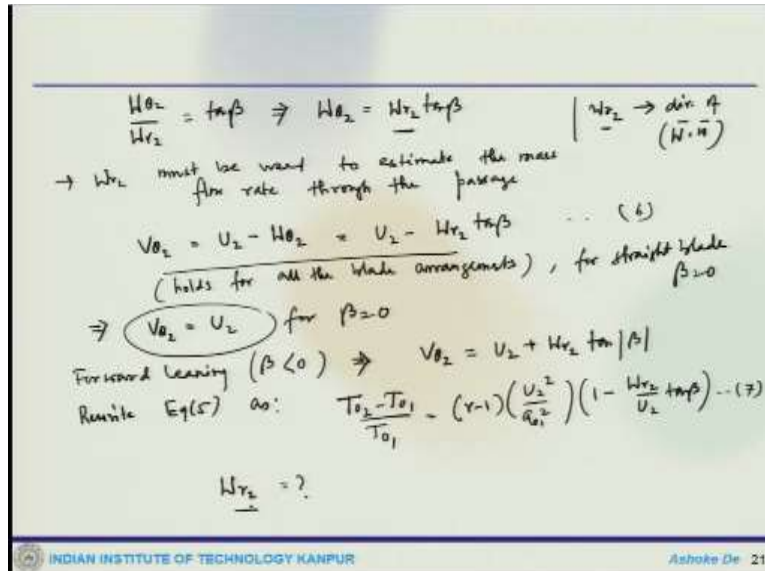 Wθ₂/Wr₂ = tanβ ⇒ Wθ₂ = Wr₂ tanβ | Wr₂ → dir. of
(W̄·n̄)
→ Wr₂ must be used to estimate the mass
flow rate through the passage
Vθ₂ = U₂ - Wθ₂ = U₂ - Wr₂ tanβ .. (6)
(holds for all the blade arrangements), for straight blade
β=0
⇒ Vθ₂ = U₂ for β=0
Forward leaning (β<0) ⇒ Vθ₂ = U₂ + Wr₂ tan|β|
Rewrite Eq(5) as: (T₀₂-T₀₁)/T₀₁ = (γ-1)(U₂²/a₀₁²)(1 - Wr₂/U₂ tanβ) ..(7)
Wr₂ = ?
INDIAN INSTITUTE OF TECHNOLOGY KANPUR
Ashoke De 21